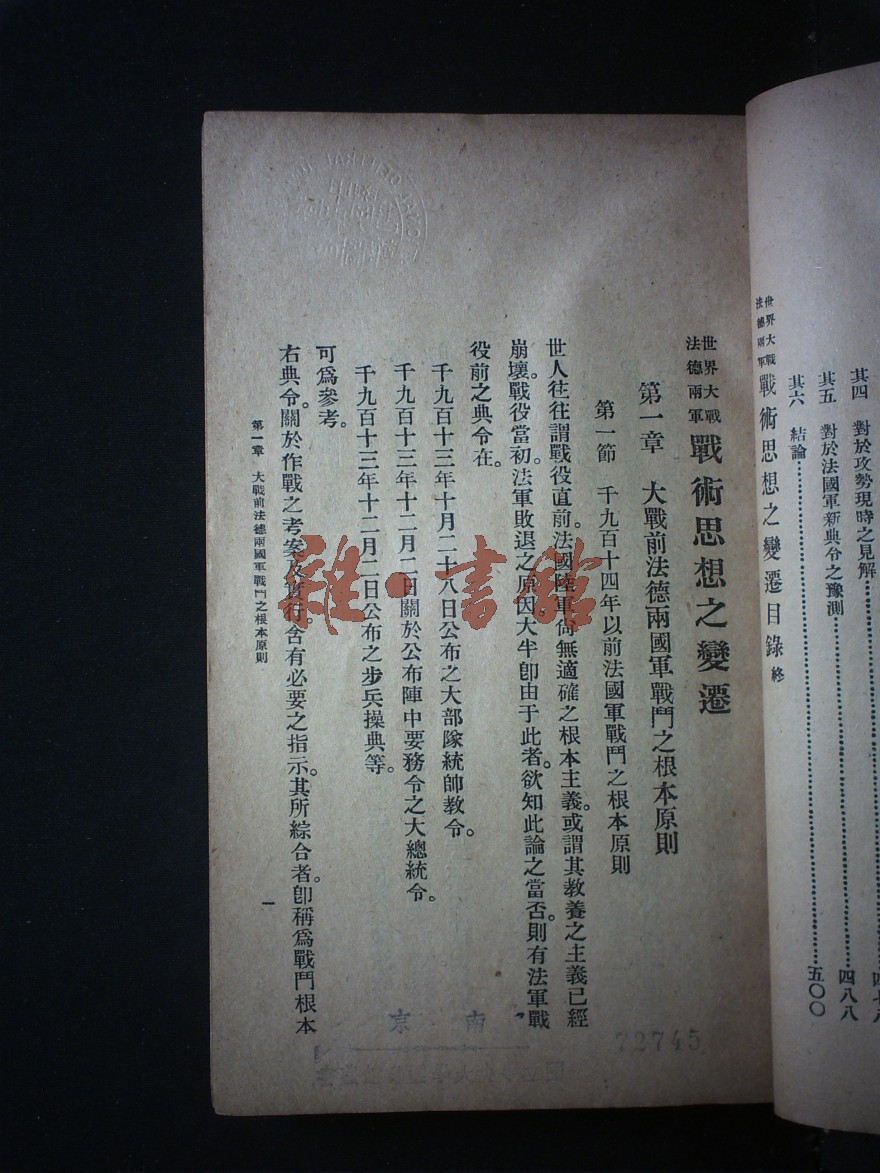 其四　對於攻勢現時之見解
其五　對於法國軍新典令之豫測……四八八
其六　結論……五〇〇
世界大戰
法德兩軍
戰術思想之變遷目錄 終
世界大戰
法德兩軍
戰術思想之變遷
第一章　大戰前法德兩國軍戰鬥之根本原則
第一節　千九百十四年以前法國軍戰鬥之根本原則
世人往往謂戰役直前。法國陸軍尙無適確之根本主義。或謂其教養之主義已經
崩壞。戰役當初。法軍敗退之原因。大半卽由于此者。欲知此論之當否。則有法軍戰
役前之典令在。
千九百十三年十月二十八日公布之大部隊統帥教令。
千九百十三年十二月二日關於公布陣中要務令之大總統令。
千九百十三年十二月二日公布之步兵操典等。
可爲參考。
右典令。關於作戰之考案及實行。含有必要之指示。其所綜合者。卽稱爲戰鬥根本
第一章　大戰前法德兩國軍戰鬥之根本原則
一
雜·書館
南京
72745